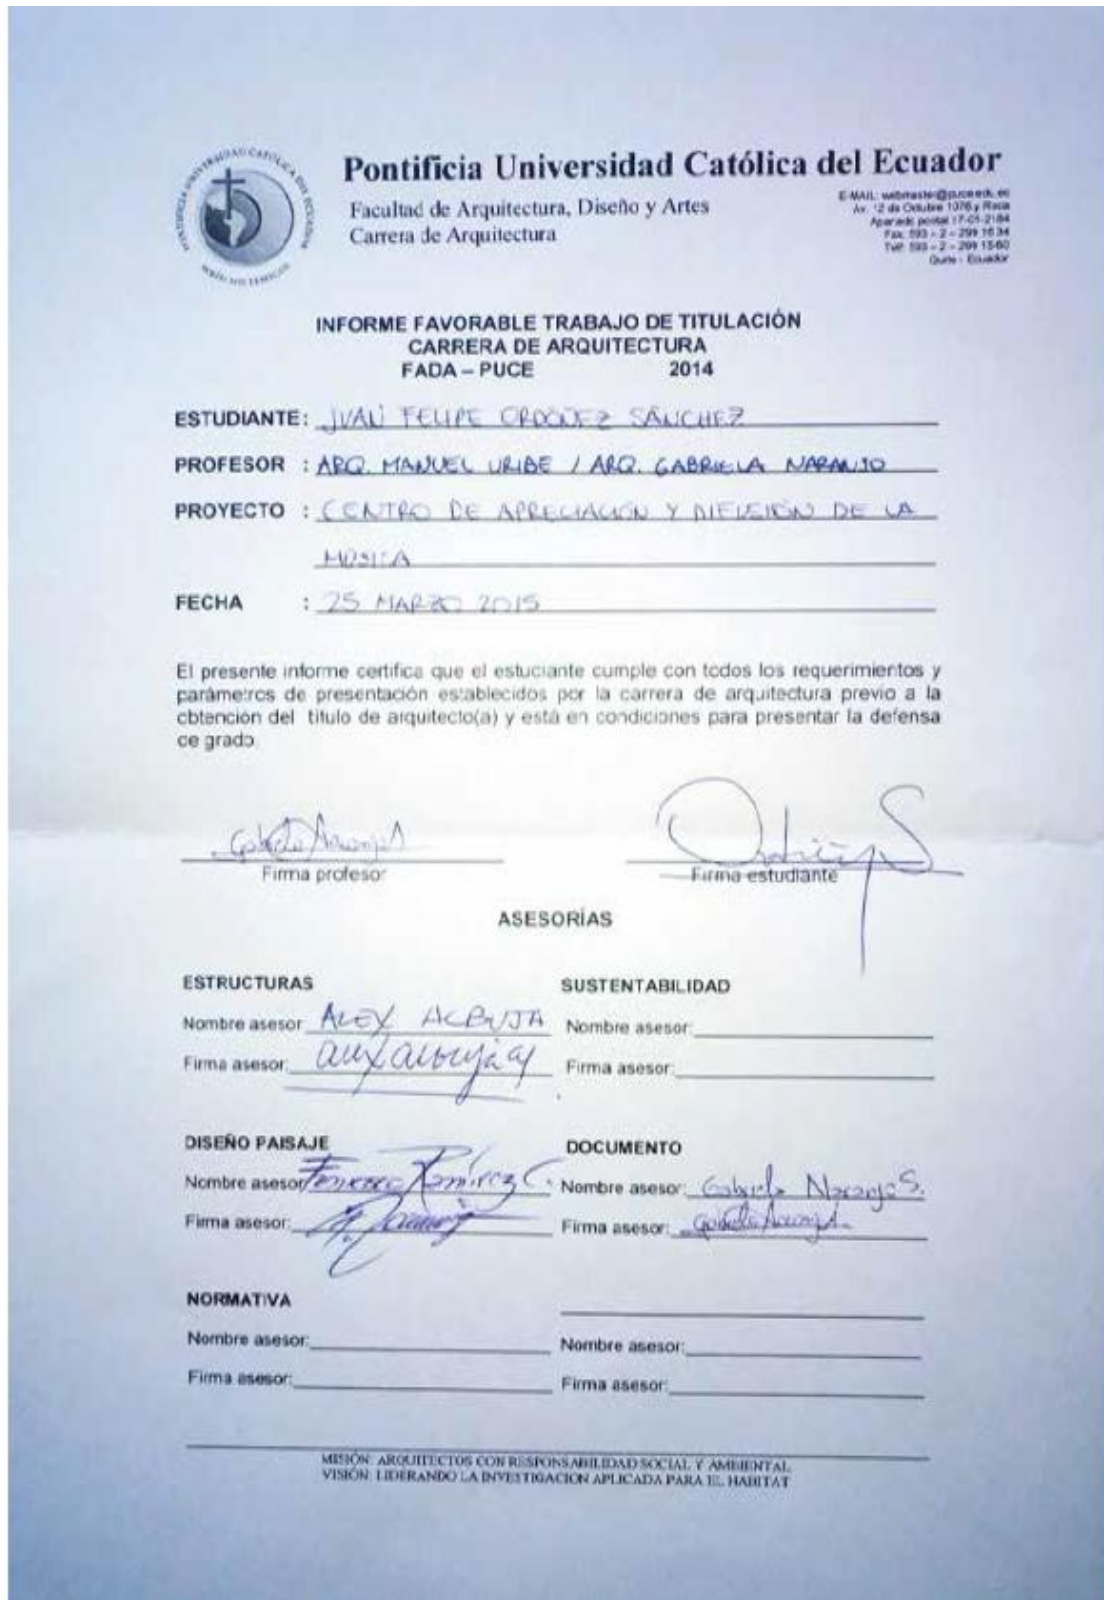 PONTIFICIA UNIVERSIDAD CATÓLICA DEL ECUADOR
Pontificia Universidad Católica del Ecuador
Facultad de Arquitectura, Diseño y Artes
Carrera de Arquitectura
E-MAIL: webmaster@puce.edu.ec
Av. 12 de Octubre 1076 y Roca
Apartado postal 17-01-2184
Fax: 593 – 2 – 299 16 34
Telf: 593 – 2 – 299 15 60
Quito - Ecuador
INFORME FAVORABLE TRABAJO DE TITULACIÓN
CARRERA DE ARQUITECTURA
FADA – PUCE 2014
ESTUDIANTE: JUAN FELIPE ORDOÑEZ SÁNCHEZ
PROFESOR : ARQ. MANUEL URIBE / ARQ. GABRIELA NARANJO
PROYECTO : CENTRO DE APRECIACIÓN Y DIFUSIÓN DE LA
MÚSICA
FECHA : 25 MARZO 2015
El presente informe certifica que el estudiante cumple con todos los requerimientos y
parámetros de presentación establecidos por la carrera de arquitectura previo a la
obtención del título de arquitecto(a) y está en condiciones para presentar la defensa
de grado
Firma profesor
Firma estudiante
ASESORÍAS
ESTRUCTURAS
Nombre asesor ALEX ALBUJA
Firma asesor:
SUSTENTABILIDAD
Nombre asesor:
Firma asesor:
DISEÑO PAISAJE
Nombre asesor Ramírez C.
Firma asesor:
DOCUMENTO
Nombre asesor: Gabriela Naranjo S.
Firma asesor:
NORMATIVA
Nombre asesor:
Firma asesor:
Nombre asesor:
Firma asesor:
MISIÓN: ARQUITECTOS CON RESPONSABILIDAD SOCIAL Y AMBIENTAL
VISIÓN: LIDERANDO LA INVESTIGACIÓN APLICADA PARA EL HABITAT